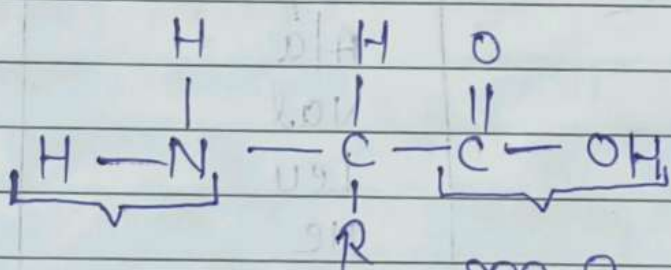 H H O
H — N — C — C — OH
R